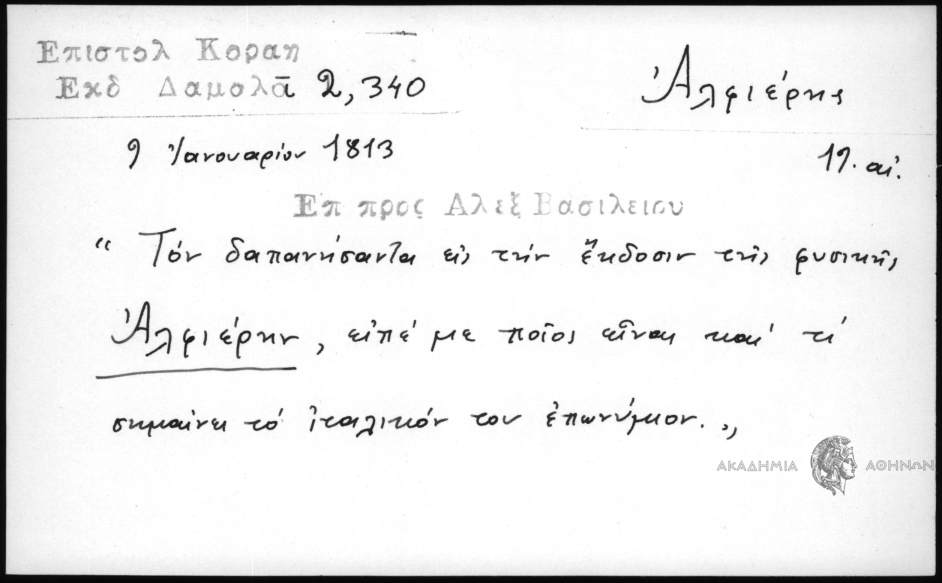 Επιστολ Κοραη
Εκδ Δαμαλᾶ 2,340
Ἀλφιέρης
9 Ἰανουαρίου 1813
19. αἰ.
Επ προς Αλεξ Βασιλειου
“ Τόν δαπανήσαντα εἰς τήν ἔκδοσιν τῆς φυσικῆς
Ἀλφιέρην, εἰπέ με ποῖος εἶναι καί τί
σημαίνει τό ἰταλικόν του ἐπωνύμιον. „
ΑΚΑΔΗΜΙΑ ΑΘΗΝΩΝ